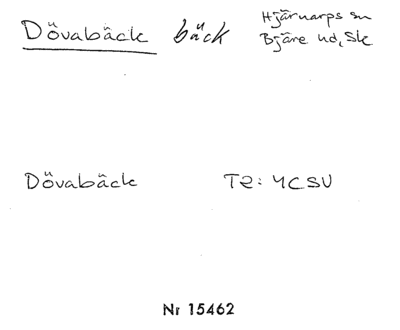 Dövabäck bäck Hjärnarps sn
Bjäre hd, Sk
Dövabäck T2: 4CSV
Nr 15462